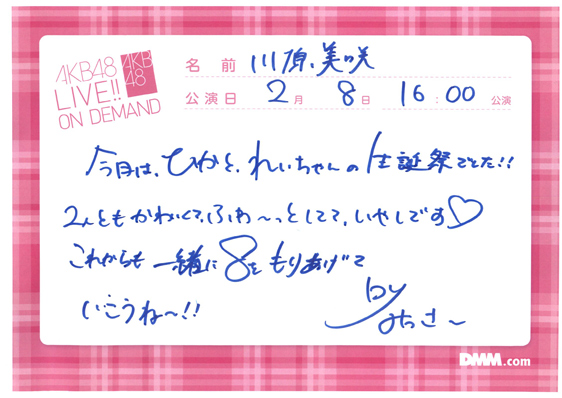 AKB48
LIVE!!
ON DEMAND
AKB
48
名前 川原美咲
公演日 2月 8日 16:00 公演
今日は、ひかと、れいちゃんの生誕祭でした!!
2人ともかわいくて、ふわ〜っとしてて、いやしです♡
これからも一緒に8をもりあげて
いこうね〜!!
by
みっさー
DMM.com